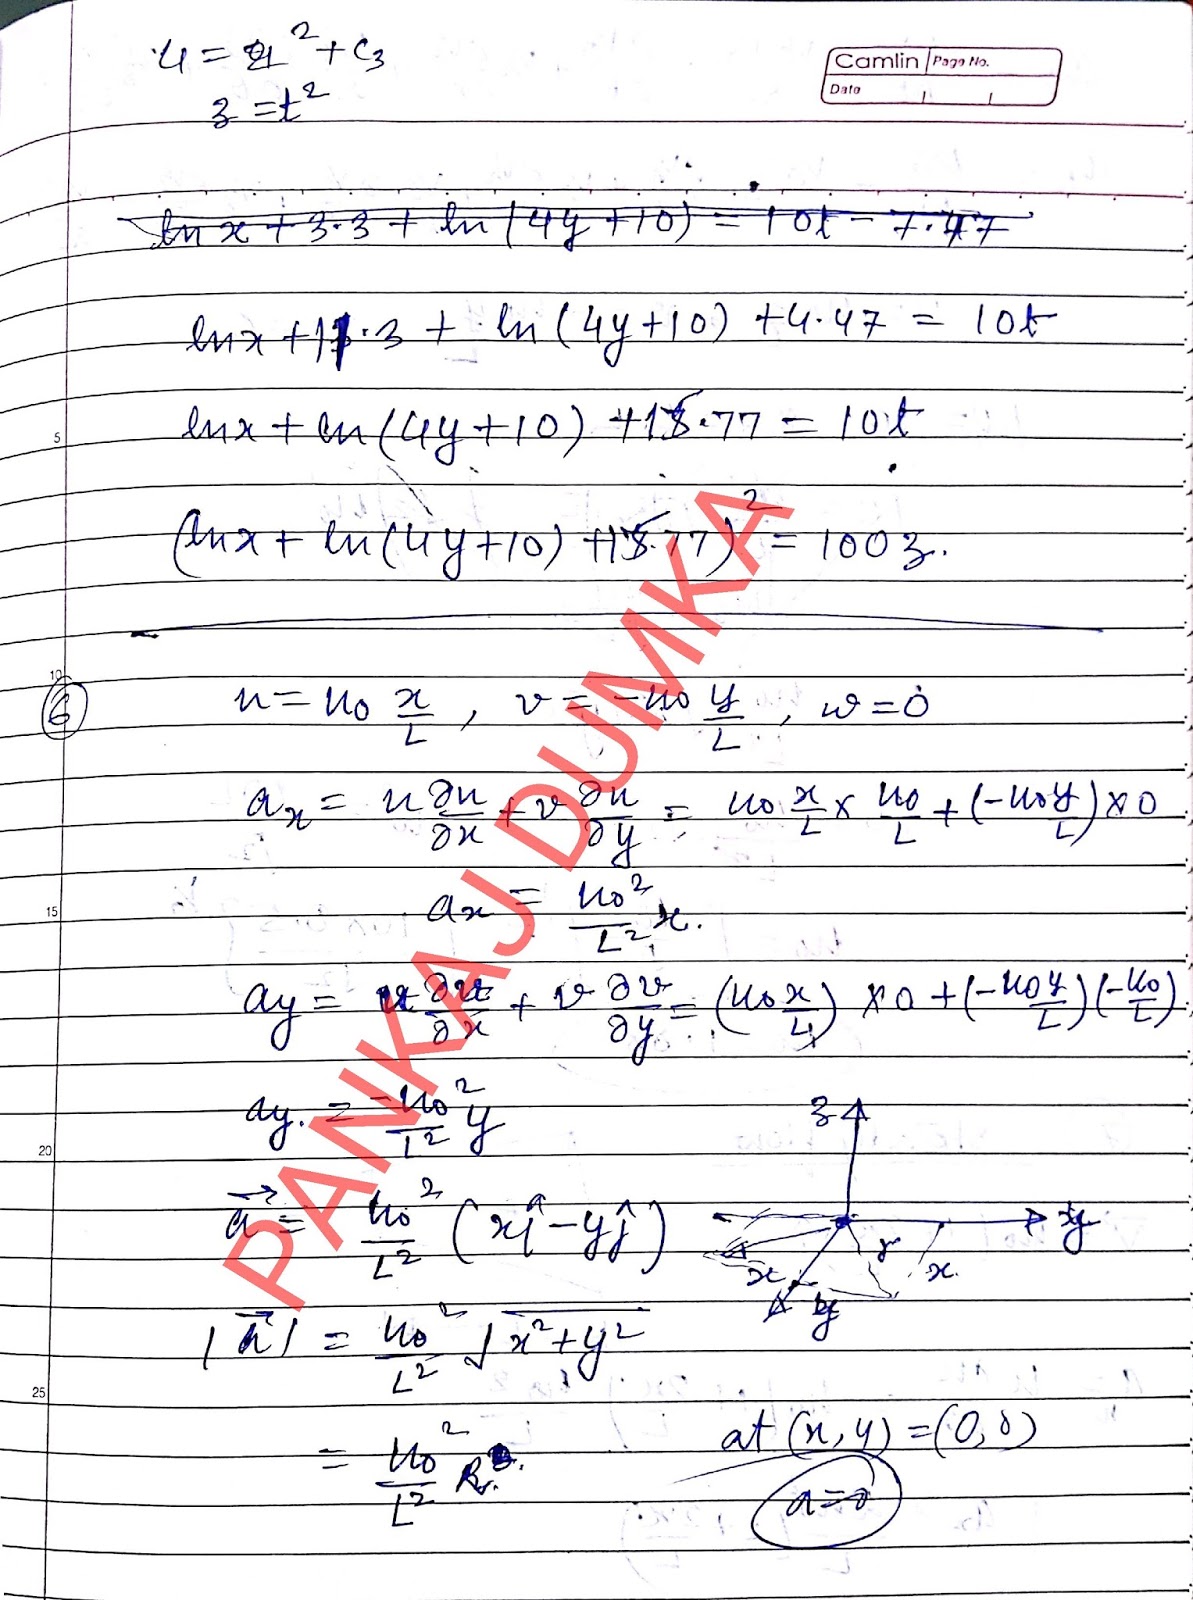 4 = 2² + C₃
z = t²
Camlin Page No.
Date
ln x + 3.3 + ln(4y+10) = 10t - 7.47
ln x + 11.3 + ln(4y+10) + 4.47 = 10t
5
ln x + ln(4y+10) + 15.77 = 10t
(ln x + ln(4y+10) + 15.77)² = 100z.
10
6 u = u₀ x/L , v = -u₀ y/L , w = 0
aₓ = u ∂u/∂x + v ∂u/∂y = u₀ x/L × u₀/L + (-u₀y/L) × 0
15
aₓ = u₀²/L² x.
ay = u ∂v/∂x + v ∂v/∂y = (u₀ x/L) × 0 + (-u₀ y/L)(-u₀/L)
ay. = -u₀²/L² y
z
20
a⃗ = u₀²/L² (xî - yĵ)
y
r
x
x
y
|a⃗| = u₀²/L² √x²+y²
25
at (x, y) = (0, 0)
= u₀²/L² R.
a = 0
PANKAJ DUMKA